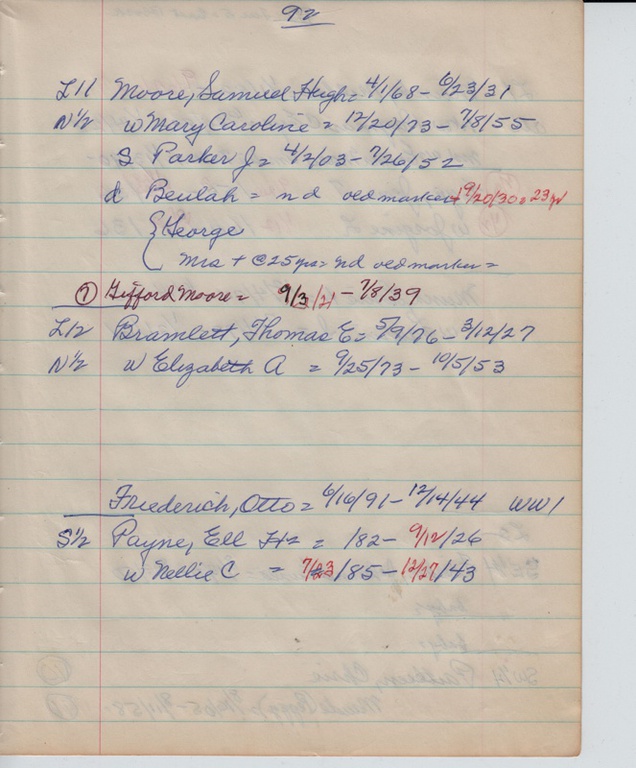 92
L11 Moore, Samuel Hugh = 4/1/68 - 6/23/31
N½ w Mary Caroline = 12/20/73 - 7/8/55
S Parker J = 4/2/03 - 7/26/52
d Beulah = nd oed marker + 9/20/30 = 23 yr
{ George
Mrs + @ 25 yrs = nd oed marker =
① Gifford Moore = 9/3/21 - 7/8/39
L12 Bramlett, Thomas E = 5/9/76 - 3/12/27
N½ w Elizabeth A = 9/25/73 - 10/5/53
Friederich, Otto = 6/16/91 - 12/14/44 WW1
S½ Payne, Ell = /82 - 9/12/26
w Nellie C = 7/23/85 - 12/27/43